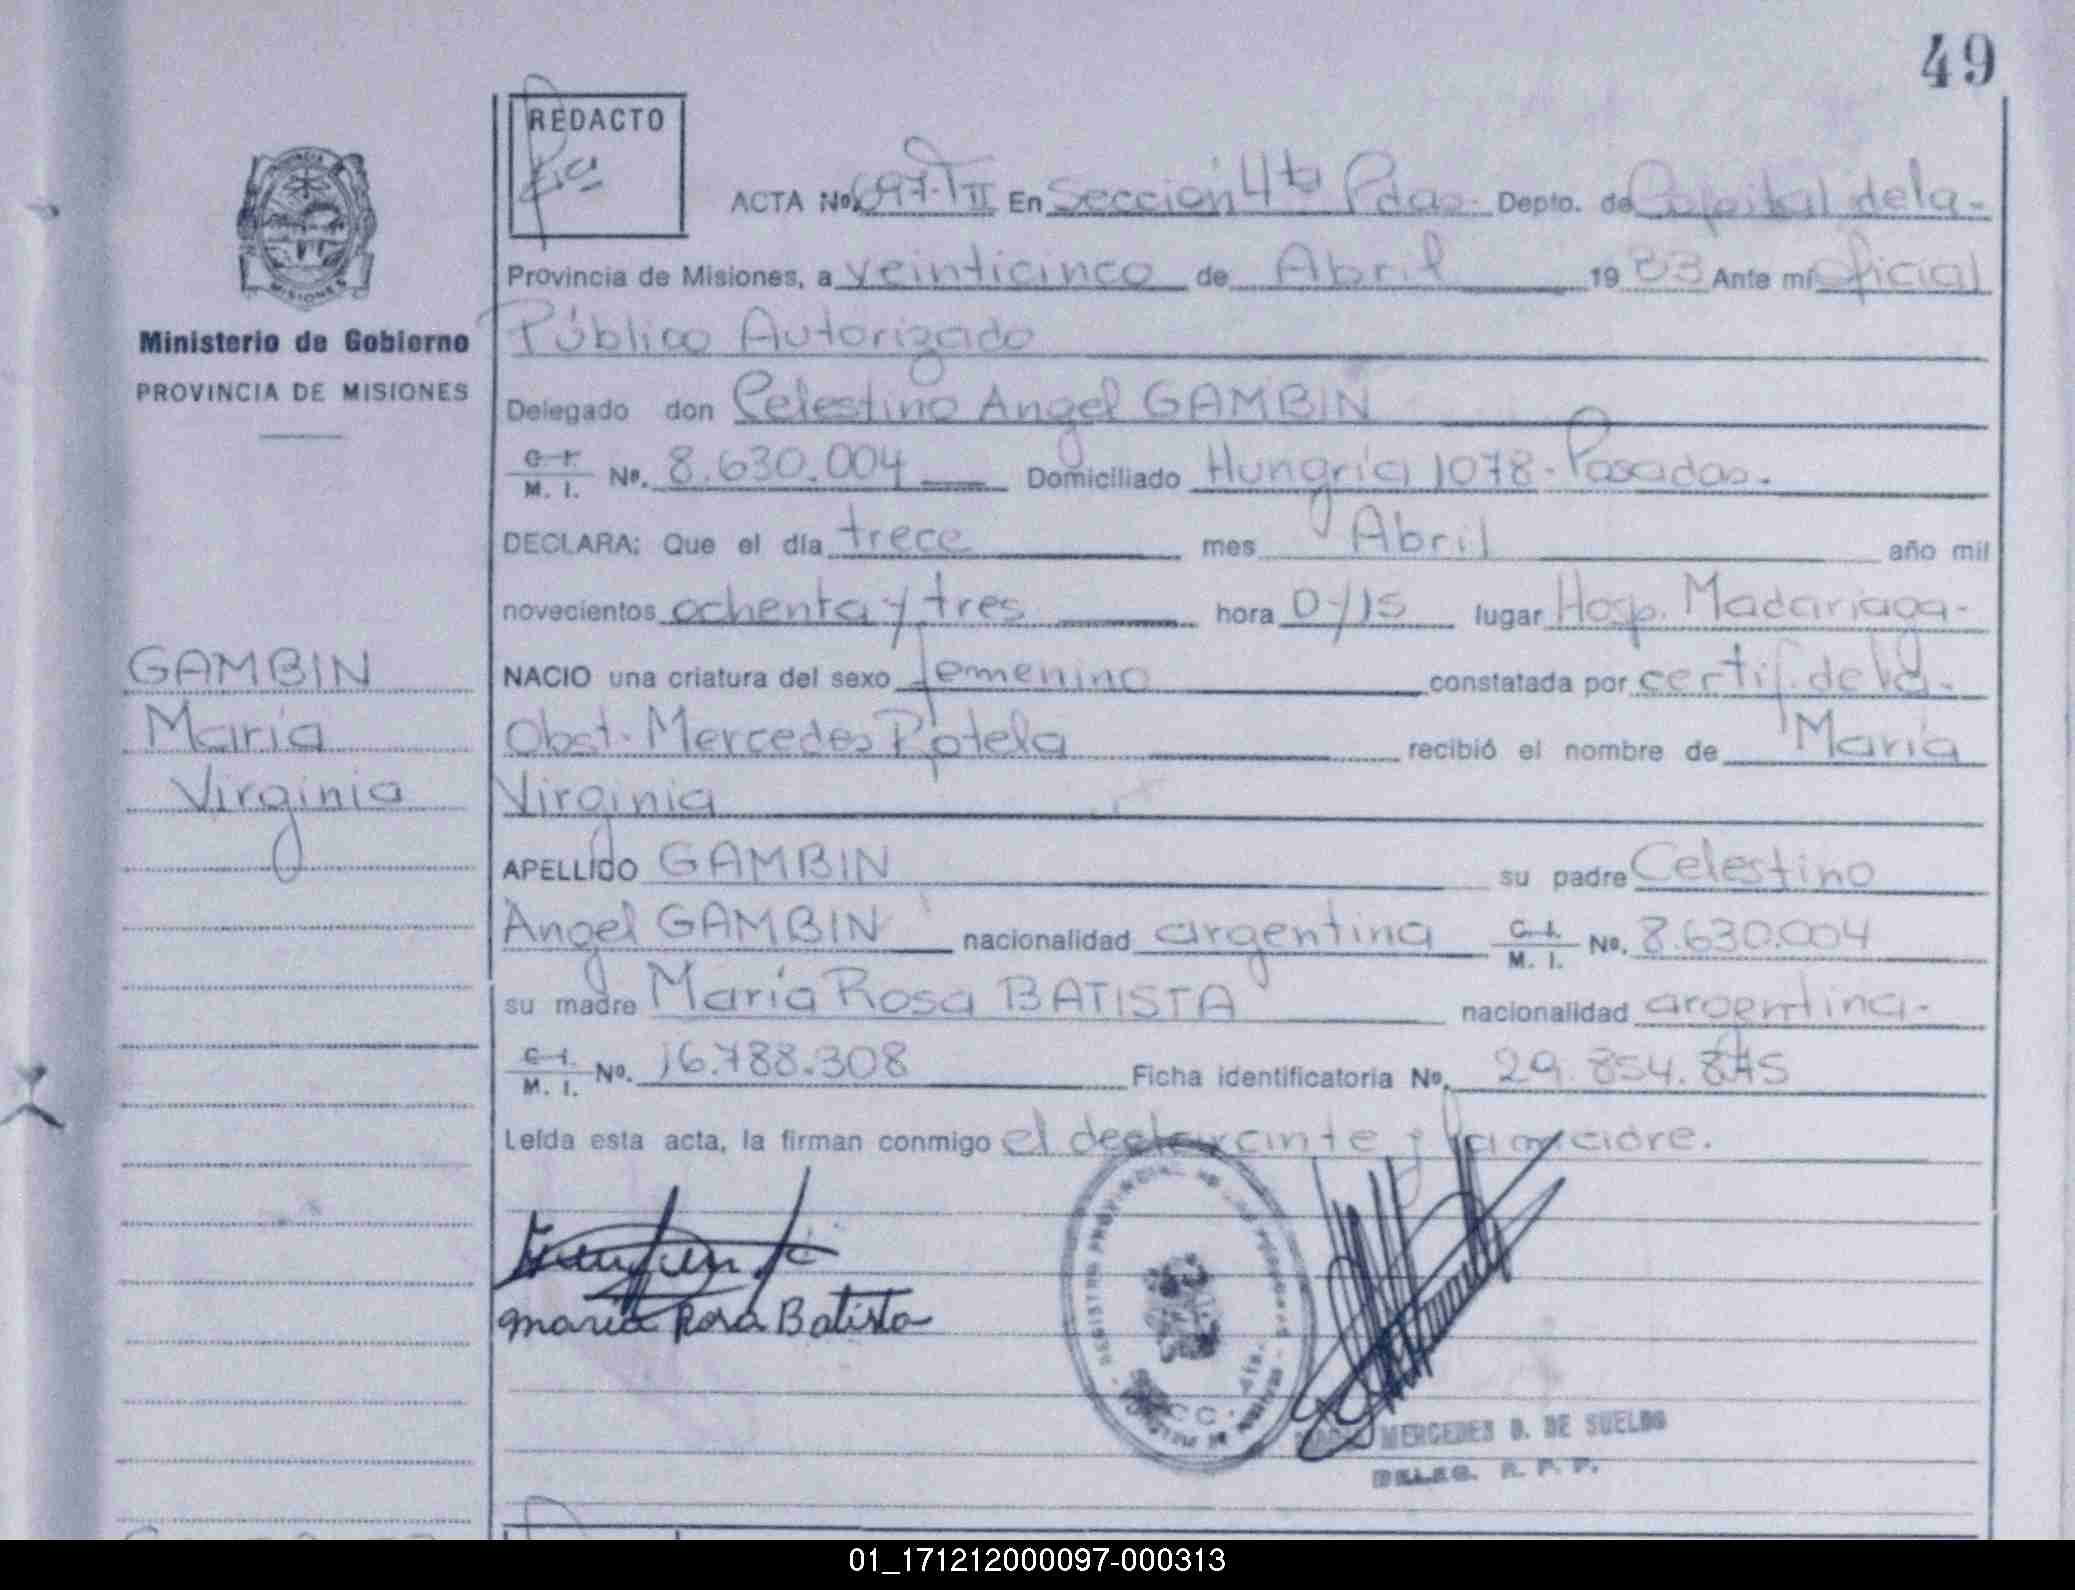 49
REDACTO
ACTA Nº 697-TII En Sección 4ta Pdas. Depto. de Capital de la-
Provincia de Misiones, a veinticinco de Abril 1983 Ante mí oficial
Ministerio de Gobierno
Público Autorizado
PROVINCIA DE MISIONES
Delegado don Celestino Angel GAMBIN
C. I. M. I. Nº. 8.630.004 Domiciliado Hungría 1078-Posadas.
DECLARA: Que el día trece mes Abril año mil
novecientos ochenta y tres hora 0/15 lugar Hosp. Madariaga-
GAMBIN
María
Virginia
NACIO una criatura del sexo femenino constatada por certif. de la-
Obst. Mercedes Rotela recibió el nombre de María
Virginia
APELLIDO GAMBIN su padre Celestino
Angel GAMBIN nacionalidad argentina C. I. M. I. Nº. 8.630.004
su madre María Rosa BATISTA nacionalidad argentina-
C. I. M. I. Nº. 16.788.308 Ficha identificatoria Nº. 29.854.845
Leída esta acta, la firman conmigo el declarante y la madre.
maria Rosa Batista
REGISTRO PROVINCIAL DE LAS PERSONAS
MERCEDES D. DE SUELDO
DELEG. R. P. P.
01_171212000097-000313